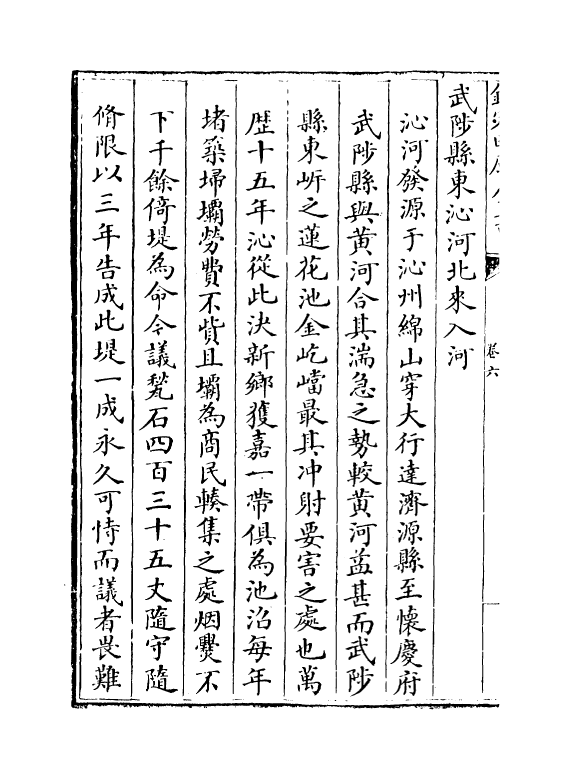 卷六
武陟縣東沁河北來入河
沁河發源于沁州綿山穿大行達濟源縣至懷慶府
武陟縣與黄河合其湍急之勢較黄河益甚而武陟
縣東岓之蓮花池金屹嵣最其冲射要害之處也萬
歴十五年沁從此決新鄉獲嘉一帶俱為池沼每年
堵築埽壩勞費不貲且壩為商民輳集之處烟㸑不
下千餘倚堤為命今議甃石四百三十五丈隨守隨
脩限以三年告成此堤一成永久可恃而議者畏難